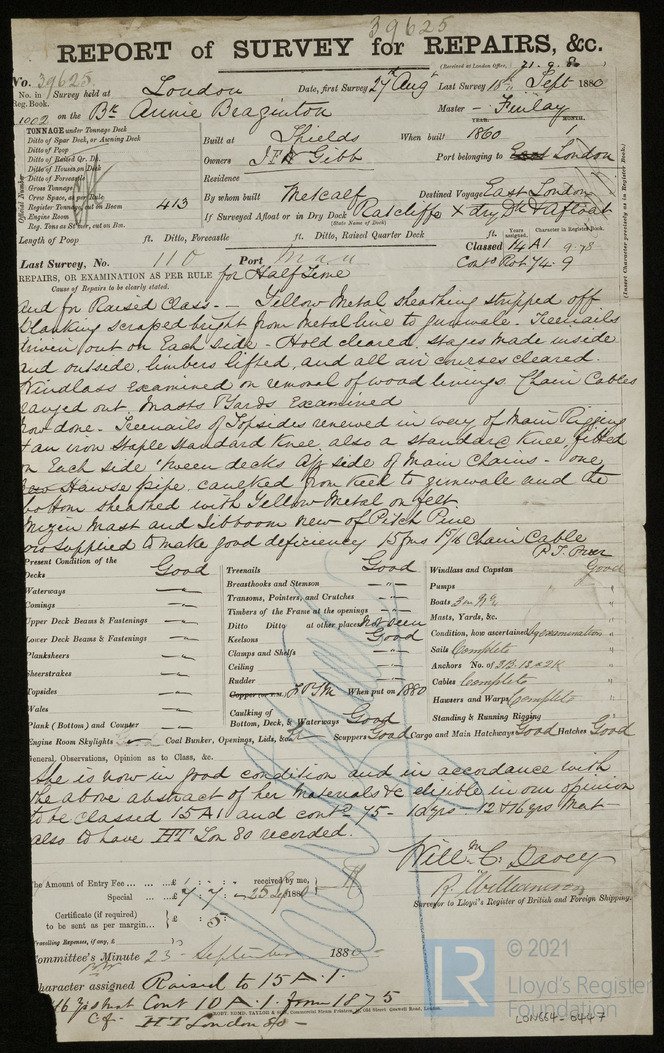 39625
REPORT of SURVEY for REPAIRS, &c.
(Received at London Office, 21.9.80)
No. 39625
No. in Reg. Book. Survey held at London Date, first Survey 27th Augt Last Survey 18th Sept 1880
1902 on the Bk Annie Braginton Master - Finlay
TONNAGE under Tonnage Deck
Ditto of Spar Deck, or Awning Deck
Ditto of Poop
Ditto of Raised Qr. Dk.
Ditto of Houses on Deck
Ditto of Forecastle
Gross Tonnage
Crew Space, as per Rule
Register Tonnage, cut on Beam 413
Engine Room
Reg. Tons as Steamer, cut on Bm.
Official Number
Built at Shields When built YEAR. 1860 MONTH. 1
Owners Gibb Port belonging to London
Residence
By whom built Metcalf Destined Voyage East London
If Surveyed Afloat or in Dry Dock Ratcliffe X dry Dk & afloat
(State Name of Dock)
Length of Poop ft. Ditto, Forecastle ft. Ditto, Raised Quarter Deck ft.
Years assigned. Character in Register Book.
Classed 14 A1 9.78
Contd Rot 74.9
(Insert Character precisely as in Register Book.)
Last Survey, No. 110 Port
REPAIRS, OR EXAMINATION AS PER RULE for Half Time
Cause of Repairs to be clearly stated.
and for Raised Class. — Yellow Metal sheathing stripped off
planking scraped bright from Metal line to gunwale. Treenails
driven out on Each side - Hold cleared, stages made inside
and outside, limbers lifted, and all air courses cleared.
Windlass Examined on removal of wood linings Chain Cables
ranged out. Masts & Yards Examined
Now done - Treenails of Topsides renewed in way of Main Rigging
& an iron Staple Standard Knee also a standard Knee fitted
on Each side 'tween decks aft side of Main Chains - one
new Hawse pipe. caulked from Keel to gunwale and the
bottom sheathed with Yellow Metal on felt
Mizen Mast and Jibboom new of Pitch Pine
supplied to make good deficiency 15 fms 15/16 Chain Cable
Present Condition of the
Decks Good
Waterways "
Comings "
Upper Deck Beams & Fastenings "
Lower Deck Beams & Fastenings "
Planksheers "
Sheerstrakes "
Topsides "
Wales "
Plank (Bottom) and Counter "
Engine Room Skylights
Treenails Good
Breasthooks and Stemson "
Transoms, Pointers, and Crutches "
Timbers of the Frame at the openings "
Ditto Ditto at other places Not seen
Keelsons Good
Clamps and Shelfs "
Ceiling "
Rudder "
Copper or Y.M. When put on 1880
Caulking of Bottom, Deck, & Waterways Good
Coal Bunker, Openings, Lids, &c. Scuppers Good Cargo and Main Hatchways Good Hatches Good
Windlass and Capstan Good
Pumps "
Boats 3 in No. "
Masts, Yards, &c. "
Condition, how ascertained by examination "
Sails Complete "
Anchors No. of 3B. 1S & 2K "
Cables Complete "
Hawsers and Warps Complete "
Standing & Running Rigging "
General, Observations, Opinion as to Class, &c.
She is now in good condition and in accordance with
the above abstract of her Materials &c eligible in our opinion
to be classed 15 A1 and contd 75 - 10 yrs - 12 & 16 yrs Mat -
also to have HT Lon 80 recorded.
Willm. C. Davey
R. Williamson
Surveyor to Lloyd's Register of British and Foreign Shipping.
The Amount of Entry Fee ... ... ... £ 1 : : received by me,
Special ... £ 7 : 7 : - 25 Sep 1880
Certificate (if required) to be sent as per margin... £ : 5 :
Travelling Expenses, if any, £
Committee's Minute 23 - September 1880 -
Character assigned Raised to 15 A.1.
16 yrs mat Cont 10 A.1. from 1875
HT London 80 -
© 2021
Lloyd's Register
Foundation
LR
LON554-0447